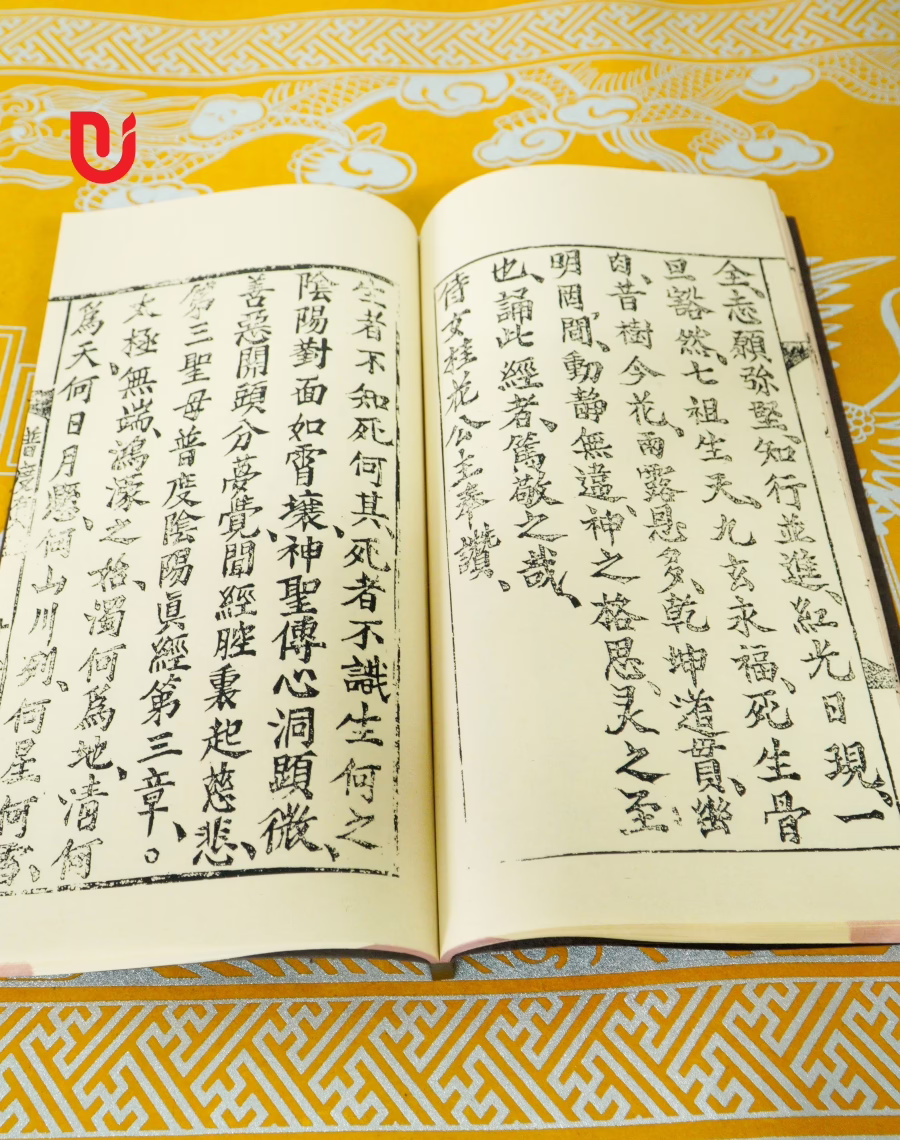 全、志願弥堅、知行並進、紅光日現、一
旦豁然、七祖生天、九玄永福、死生骨
肉、昔樹今花、雨露恩多、乾坤道貫、幽
明罔間、動靜無違、神之格思、灵之至
也、誦此經者、篤敬之哉、
侍女桂花公主奉讚、
生者不知死何其、死者不識生何之、
陰陽對面如霄壤、神聖傳心洞顕微、
善惡開頭分夢覺、聞經腔裏起慈悲、
第三聖母普度陰陽眞經第三章、。
太極無端、鴻濛之始、濁何爲地、清何
爲天、何日月懸、何山川列、何星何
普度